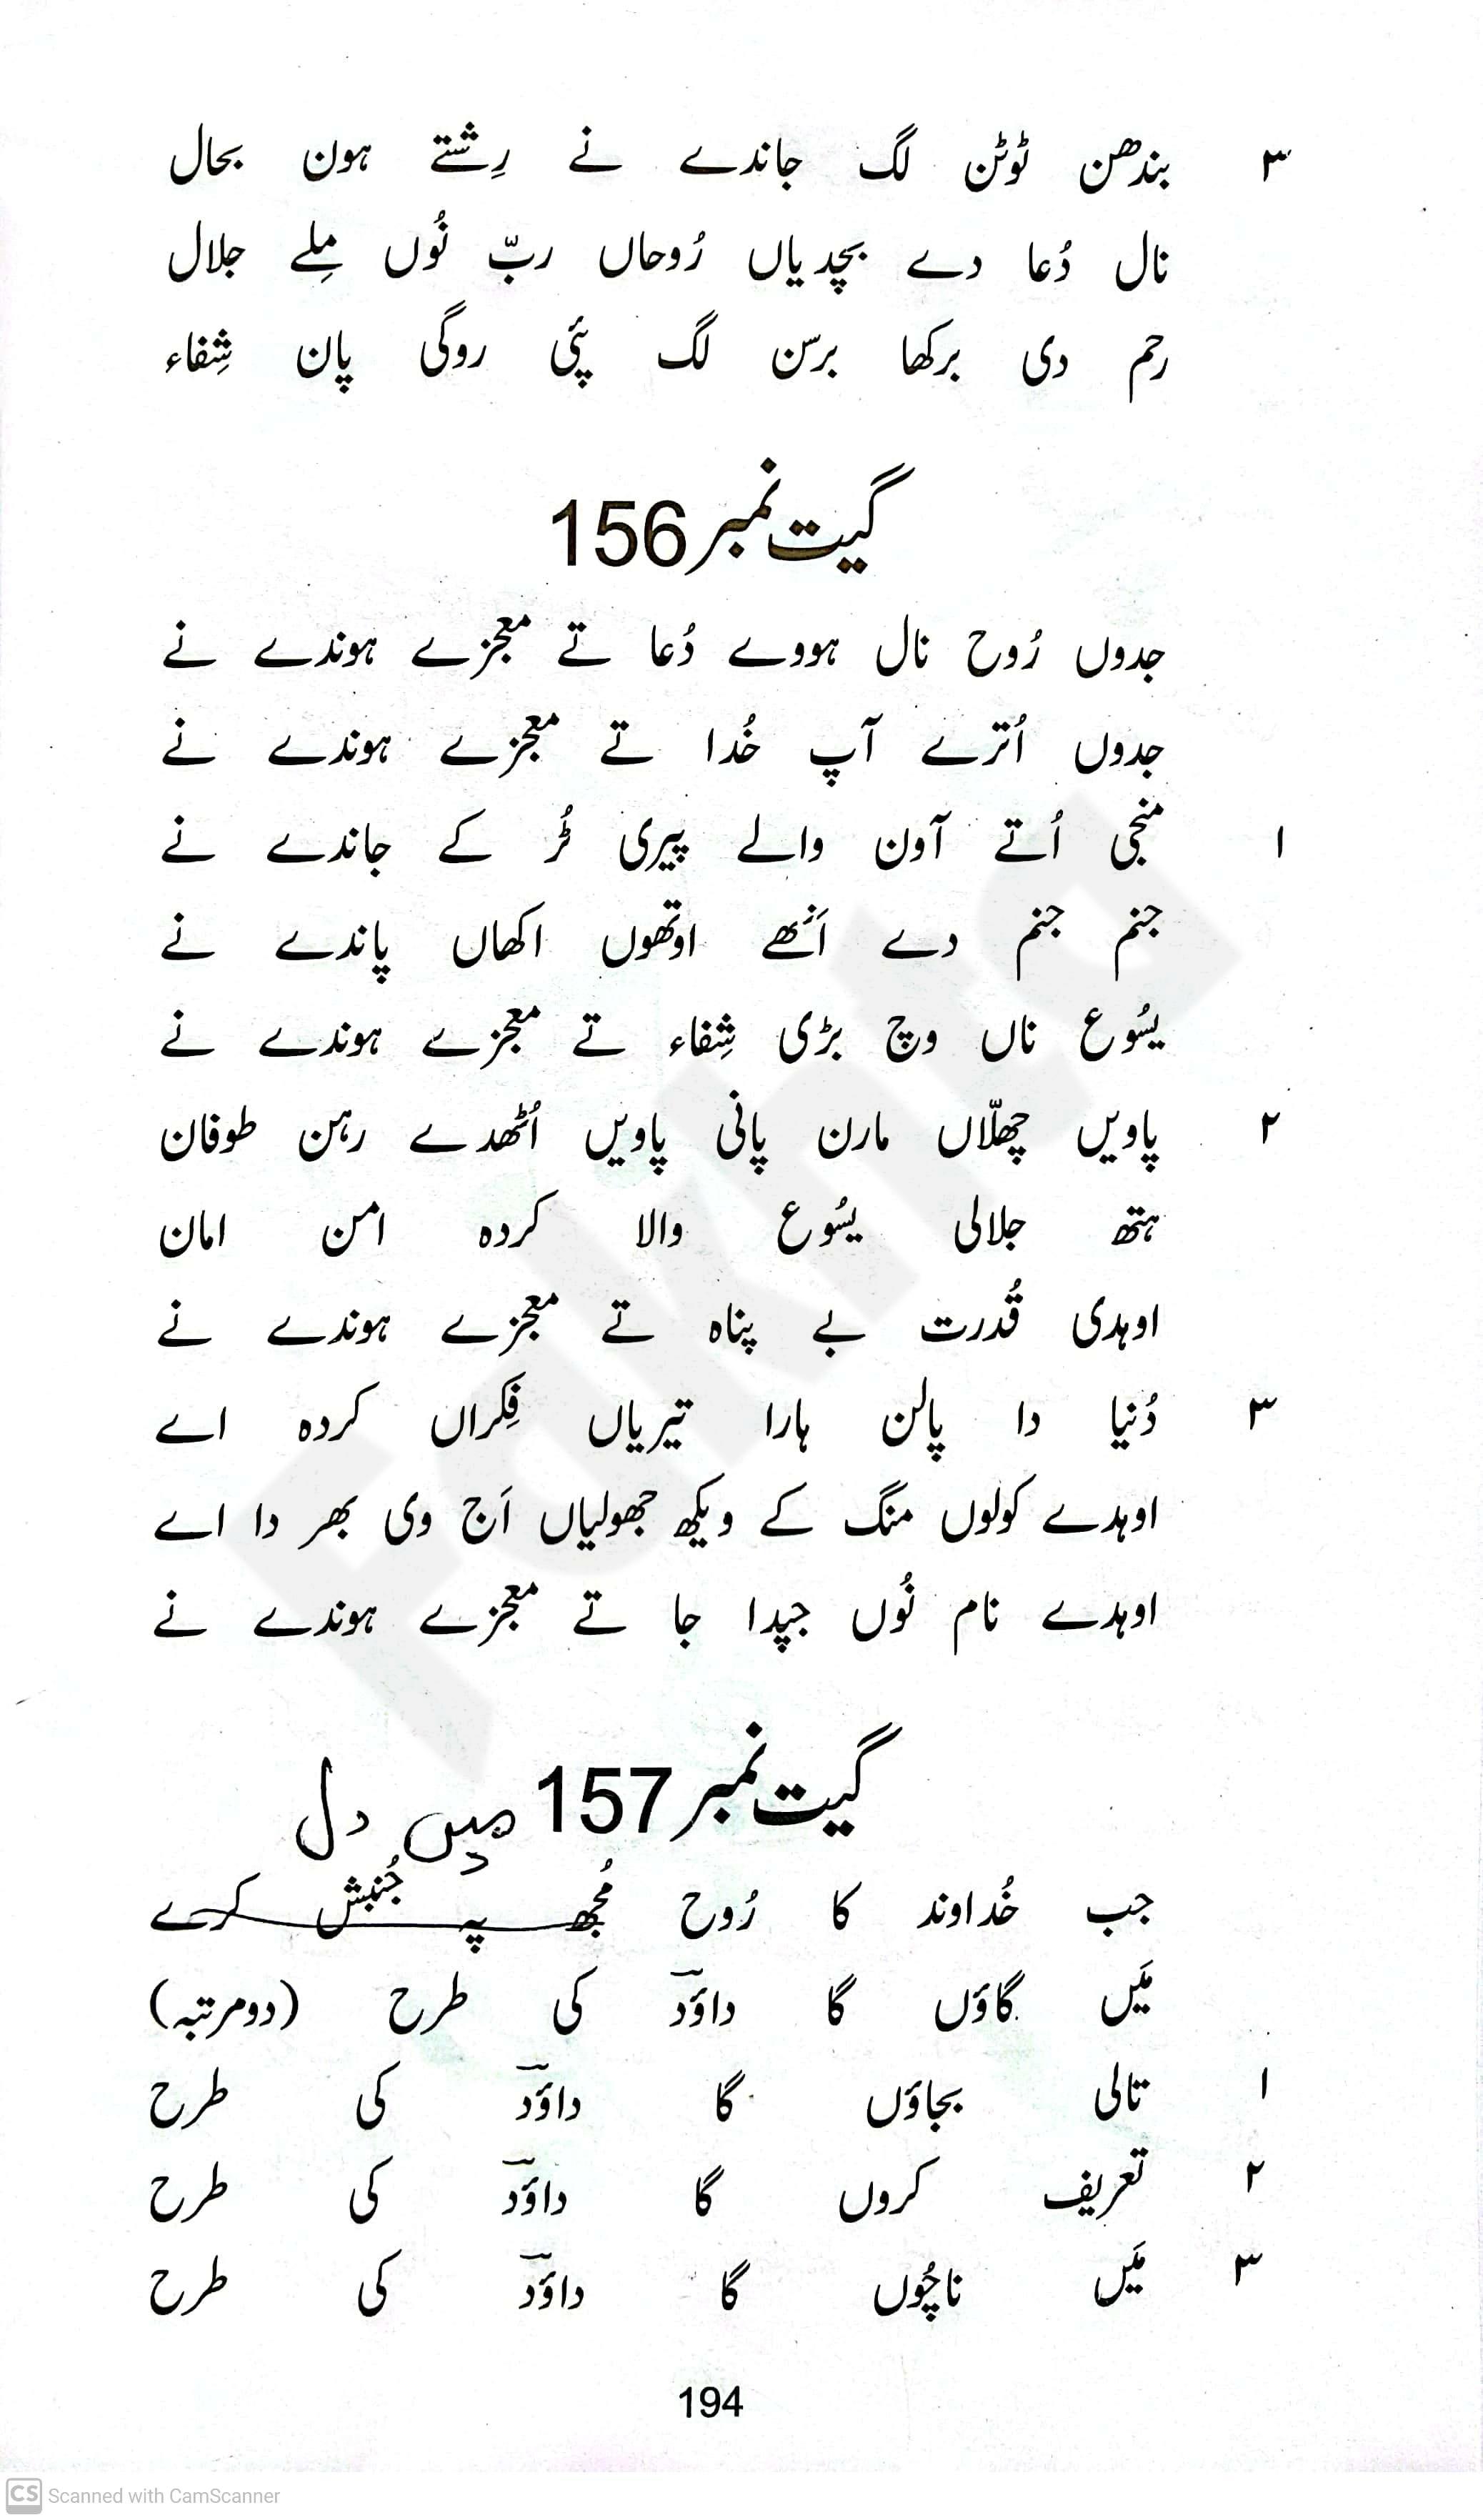 ۳ بندھن ٹوٹن لگ جاندے نے رِشتے ہون بحال
نال دُعا دے بچدیاں رُوحاں ربّ نُوں مِلے جلال
رحم دی برکھا برسن لگ پئی روگی پان شِفاء
گیت نمبر 156
جدوں رُوح نال ہووے دُعا تے معجزے ہوندے نے
جدوں اُترے آپ خُدا تے معجزے ہوندے نے
۱ منجی اُتے آون والے پیری ٹُر کے جاندے نے
جنم جنم دے اَنھے اوتھوں اکھاں پاندے نے
یسُوع ناں وچ بڑی شِفاء تے معجزے ہوندے نے
۲ پاویں چھلّاں مارن پانی پاویں اُٹھدے رہن طوفان
ہتھ جلالی یسُوع والا کردہ امن امان
اوہدی قُدرت بے پناہ تے معجزے ہوندے نے
۳ دُنیا دا پالن ہارا تیریاں فِکراں کردہ اے
اوہدے کولوں منگ کے ویکھ جھولیاں اَج وی بھر دا اے
اوہدے نام نُوں جپدا جا تے معجزے ہوندے نے
گیت نمبر 157
میں دل
جب خُداوند کا رُوح مُجھ پہ جُنبش کرے
مَیں گاؤں گا داؤد کی طرح (دومرتبہ)
۱ تالی بجاؤں گا داؤد کی طرح
۲ تعریف کروں گا داؤد کی طرح
۳ مَیں ناچُوں گا داؤد کی طرح
194
CS Scanned with CamScanner
Fakhta